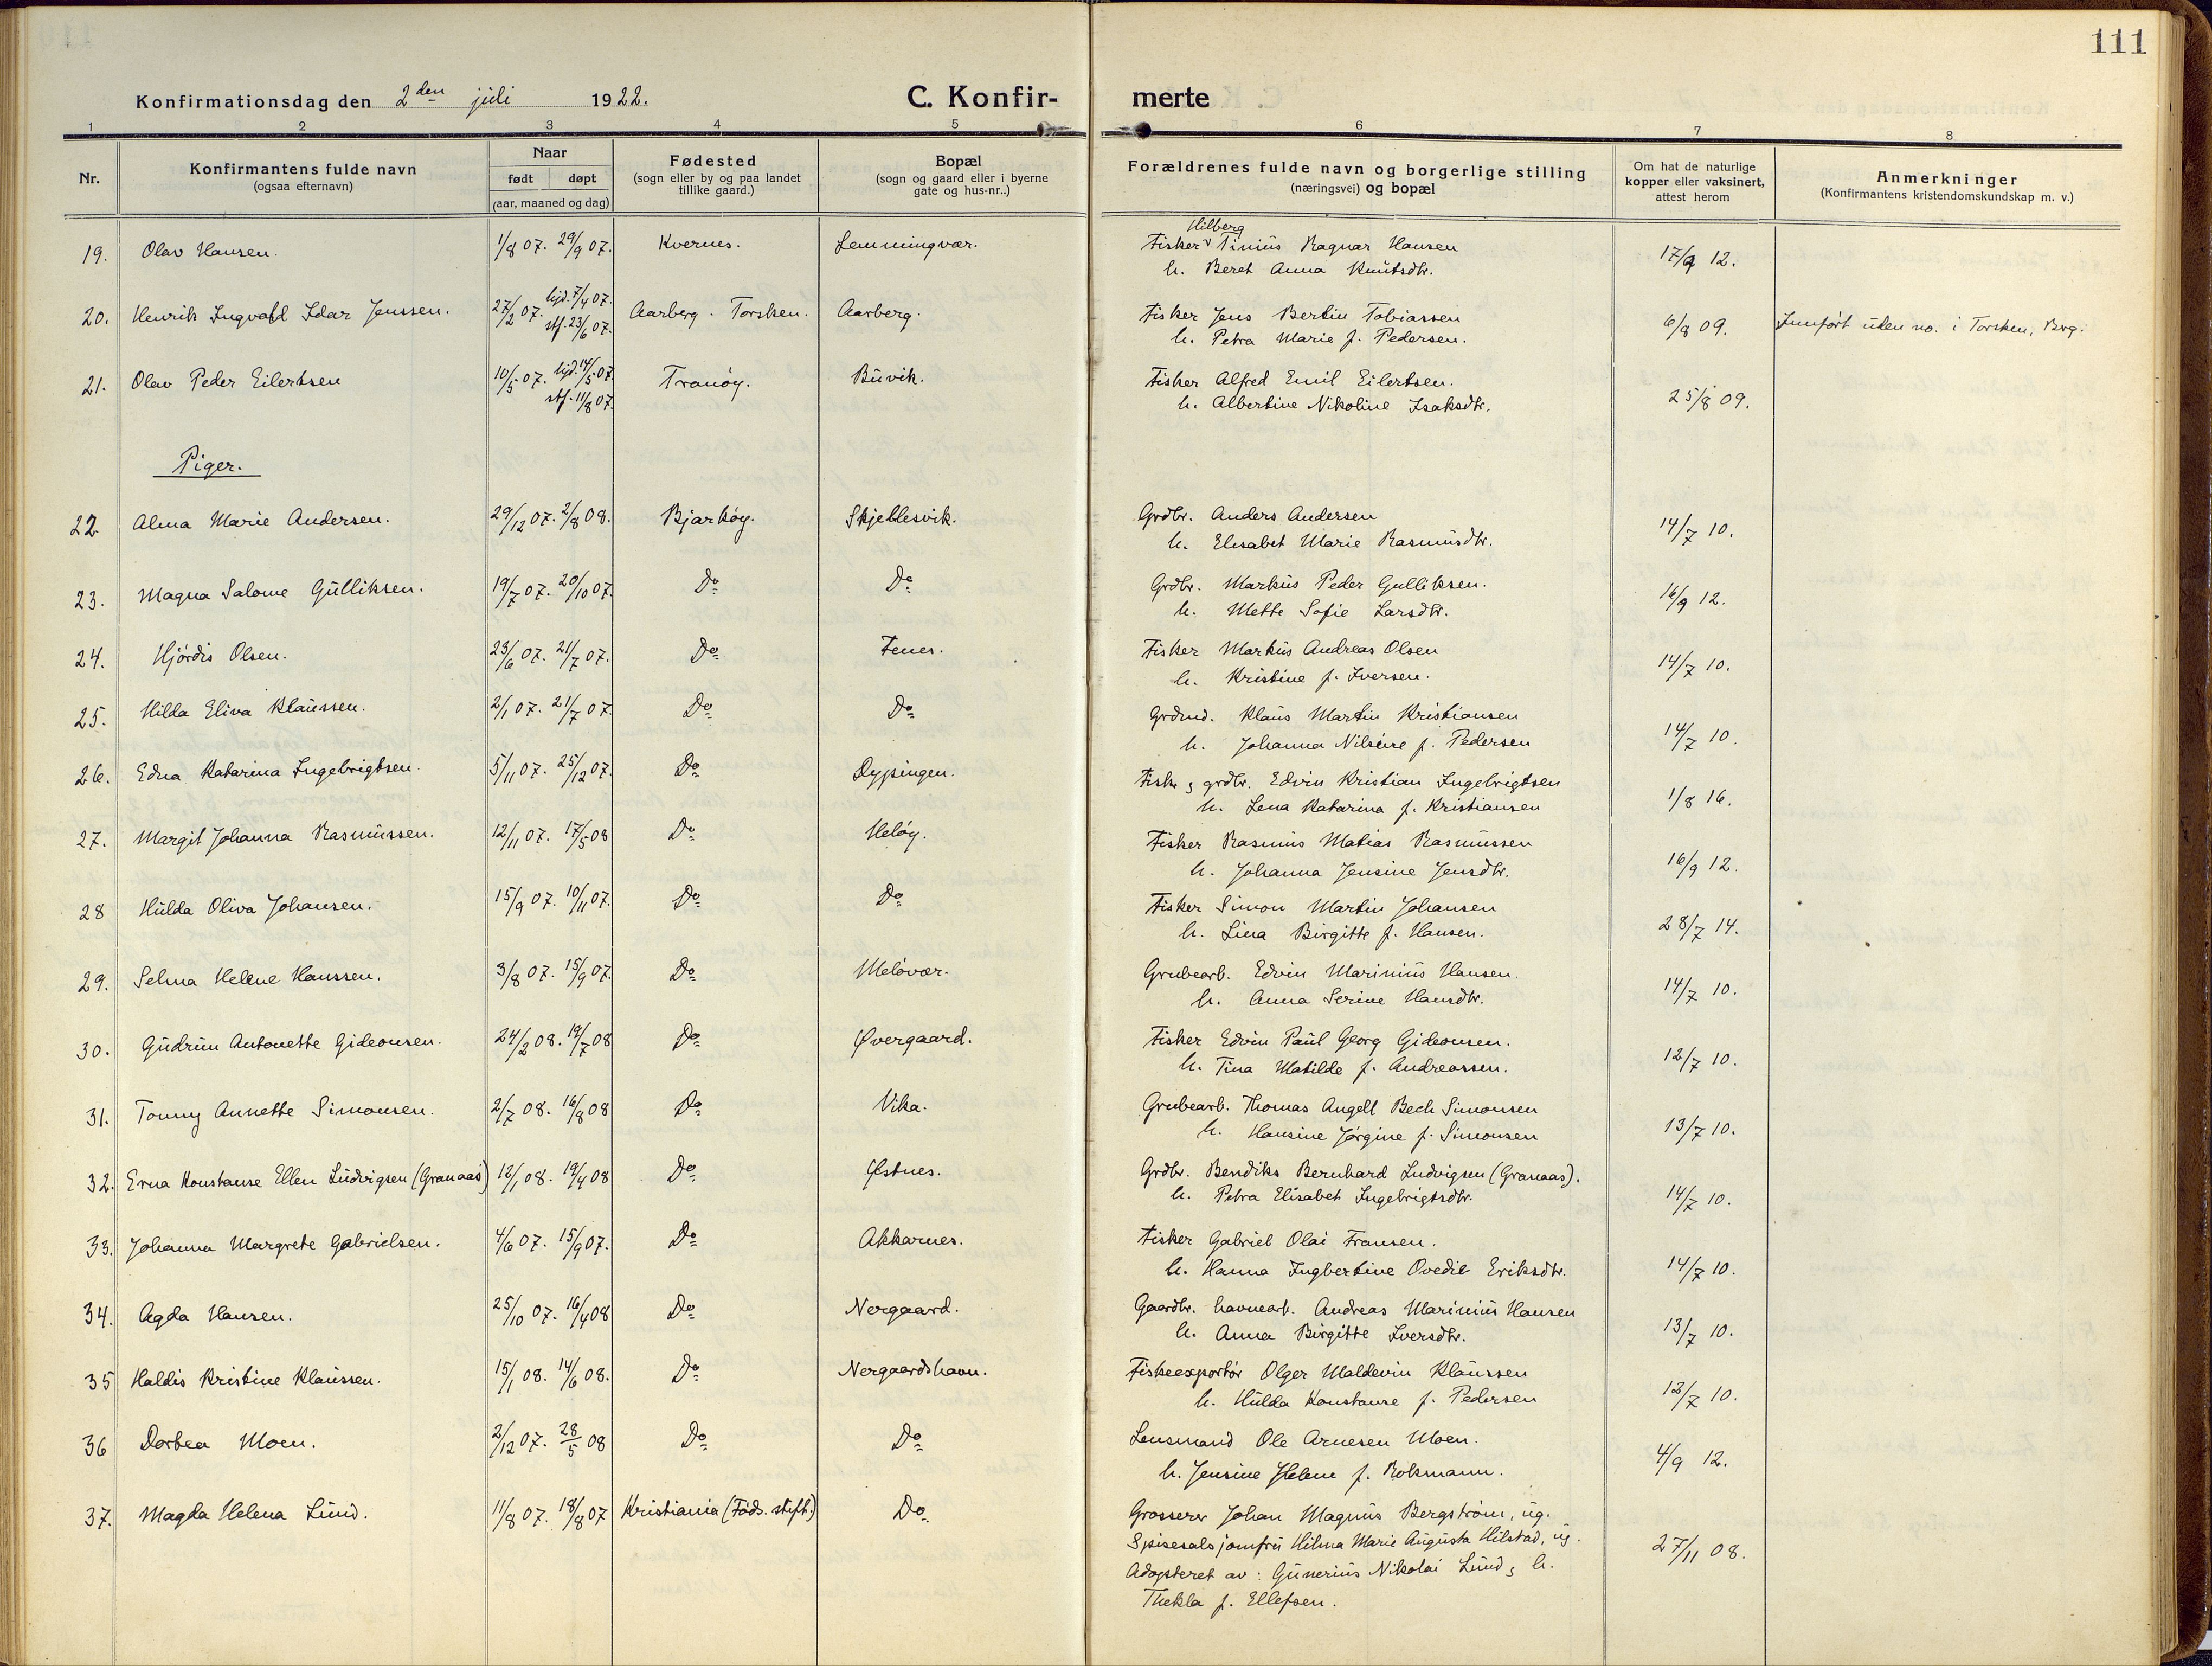 111
Konfirmationsdag den 2den juli 1922.
C. Konfirmerte
1 2 3 4 5 6 7 8
Nr.
Konfirmantens fulde navn
(ogsaa efternavn)
Naar
født døpt
(aar, maaned og dag)
Fødested
(sogn eller by og paa landet
tillike gaard.)
Bopæl
(sogn og gaard eller i byerne
gate og hus-nr..)
Forældrenes fulde navn og borgerlige stilling
(næringsvei) og bopæl
Om hat de naturlige
kopper eller vaksinert,
attest herom
Anmerkninger
(Konfirmantens kristendomskundskap m. v.)
Hilberg
19. Olav Hansen. 1/8 07. 29/9 07. Kvernes. Lemmingvær. Fisker Tinius Ragnar Hansen 17/9 12.
h. Beret Anna Knutsdtr.
20. Henrik Ingvald Idar Jenssen. 27/2 07. hjd. 7/4 07. Aarberg. Torsken. Aarberg. Fisker Jens Bertin Tobiassen 6/8 09. Innført uden no. i Torsken, Berg.
stf. 23/6 07. h. Petra Marie f. Pedersen.
21. Olav Peder Eilertsen 10/5 07. hjd. 14/5 07. Tranøy. Buvik. Fisker Alfred Emil Eilertsen. 25/8 09.
stf. 11/8 07. h. Albertine Nikoline Isaksdtr.
Piger.
22. Alma Marie Andersen. 29/12 07. 2/8 08. Bjarkøy. Skjellesvik. Grdbr. Anders Andersen 14/7 10.
h. Elisabet Marie Rasmusdtr.
23. Magna Salome Gulliksen. 19/7 07. 20/10 07. Do Do Grdbr. Markus Peder Gulliksen. 16/9 12.
h. Mette Sofie Larsdtr.
24. Hjördis Olsen. 23/6 07. 21/7 07. Do Fenes. Fisker Markus Andreas Olsen 14/7 10.
h. Kristine f. Iversen.
25. Hilda Eliva Klaussen. 2/1 07. 21/7 07. Do Do Grdmd. Klaus Martin Kristiansen 14/7 10.
h. Johanna Nilsine f. Pedersen
26. Edna Katarina Ingebrigtsen. 5/11 07. 25/12 07. Do Dypingen. Fisk. & grdbr. Edvin Kristian Ingebrigtsen 1/8 16.
h. Lena Katarina f. Kristiansen
27. Margit Johanna Rasmussen. 12/11 07. 17/5 08 Do Meløy. Fisker Rasmus Matias Rasmussen 16/9 12.
h. Johanna Jensine Jensdtr.
28 Hulda Oliva Johansen. 15/9 07. 10/11 07. Do Do Fisker Simon Martin Johansen 28/7 14.
h. Lina Birgitte f. Hansen.
29. Selma Helene Hanssen. 3/8 07. 15/9 07. Do Meløvær. Grubearb. Edvin Marinius Hansen. 14/7 10.
h. Anna Serine Hansdtr.
30. Gudrun Antonette Gideonsen. 24/2 08. 19/7 08 Do Øvergaard. Fisker Edvin Paul Georg Gideonsen. 12/7 10.
h. Tina Matilde f. Andreassen.
31. Tonny Annette Simonsen. 2/7 08. 16/8 08 Do Vika. Grubearb. Thomas Angell Bech Simonsen 13/7 10.
h. Hansine Jørgine f. Simonsen
32. Erna Konstanse Ellen Ludvigsen (Granaas) 12/1 08. 19/4 08 Do Østnes. Grdbr. Bendiks Bernhard Ludvigsen (Granaas). 14/7 10.
h. Petra Elisabet Ingebrigtsdtr.
33. Johanna Margrete Gabrielsen. 4/6 07. 15/9 07. Do Akkarnes. Fisker Gabriel Olai Fransen. 14/7 10.
h. Hanna Ingbertine Ovedie Eriksdtr.
34. Agda Hansen. 25/10 07. 16/4 08 Do Nergaard. Gaardbr. havnearb. Andreas Marinius Hansen 13/7 10.
h. Anna Birgitte Iversdtr.
35 Haldis Kristine Klaussen. 15/1 08. 14/6 08. Do Nergaardshavn. Fiskeexportør Olger Maldevin Klaussen 12/7 10.
h. Hulda Konstanse f. Pedersen
36 Dortea Moen. 2/12 07. 28/5 08 Do Do Lensmand Ole Arnesen Moen. 4/9 12.
h. Jensine Helene f. Rokmann.
37. Magda Helena Lund. 11/8 07. 18/8 07 Kristiania (Føds. stift.) Do Grosserer Johan Magnus Bergstrøm, ug. 27/11 08.
Spisesalsjomfru Hilma Marie Augusta Hilstad, ug.
Adopteret av: Gunerius Nikolai Lund & h.
Thekla f. Ellefsen.